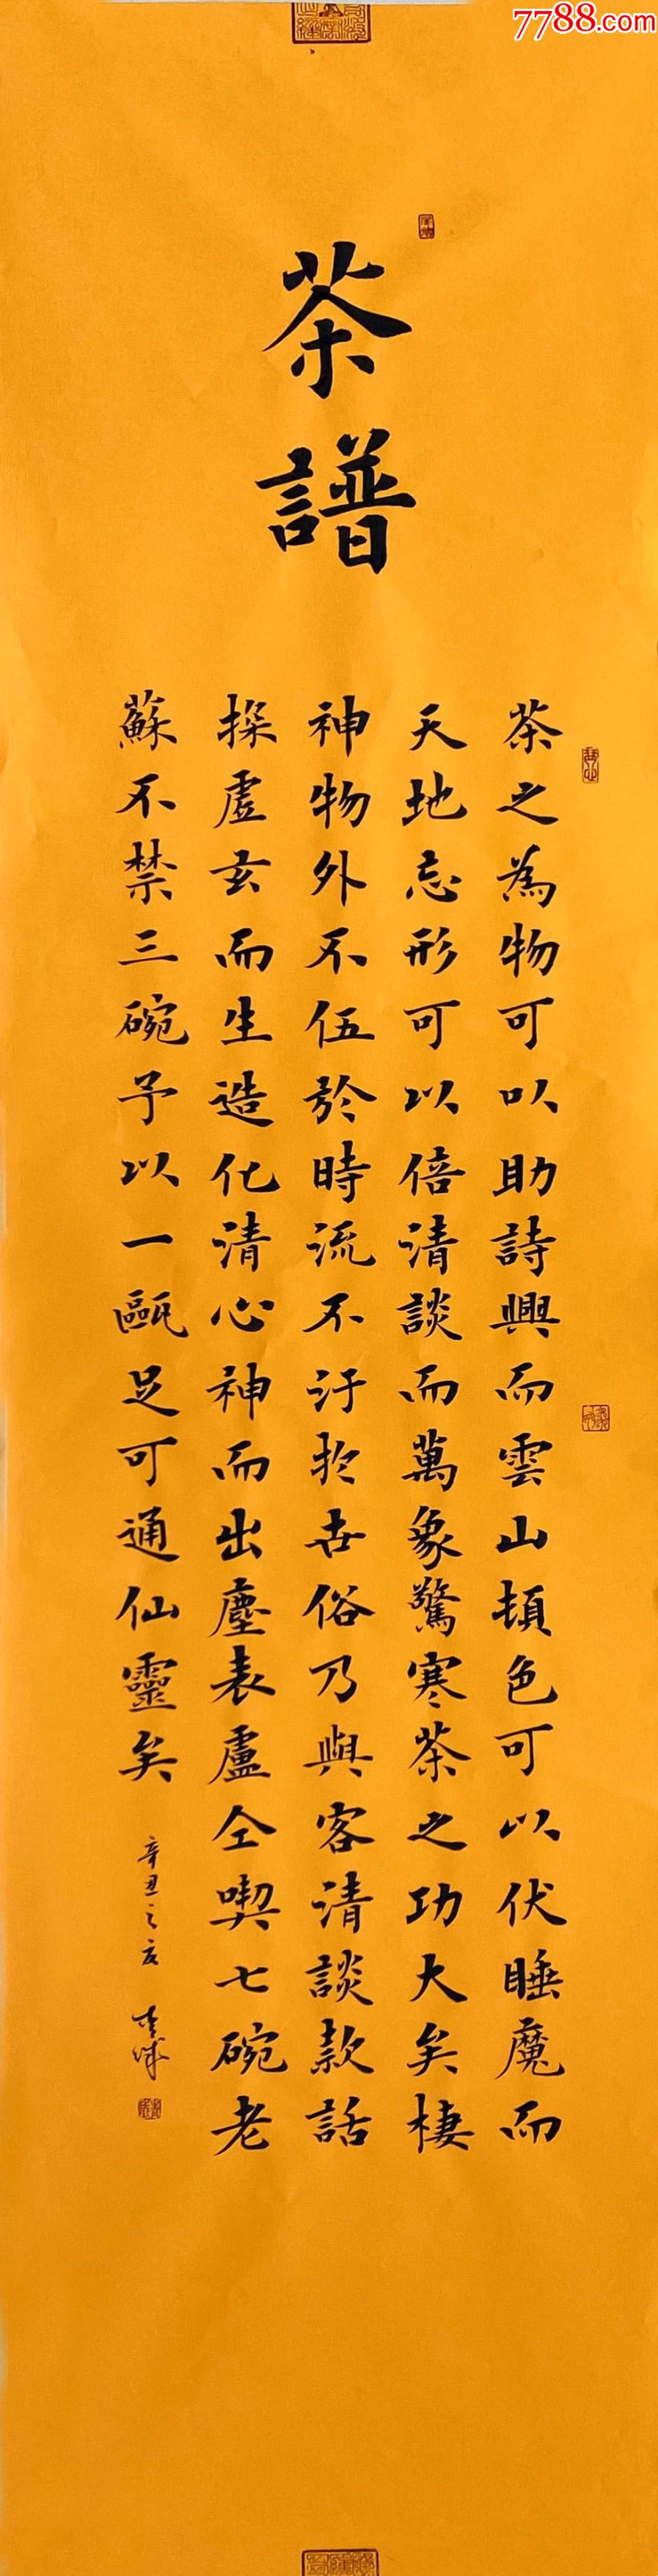 7788.com
茶譜
茶之為物可以助詩興而雲山頓色可以伏睡魔而
天地忘形可以倍清談而萬象驚寒茶之功大矣棲
神物外不伍於時流不汙於世俗乃與客清談款話
探虛玄而生造化清心神而出塵表盧仝喫七碗老
蘇不禁三碗予以一甌足可通仙靈矣
辛丑之